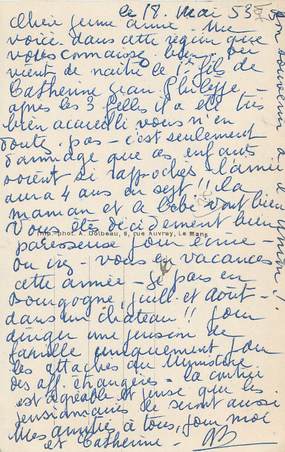 le 18. Mai 53
Chère jeune amie - Me
voici dans cette région que
vous connaissez
vient de naître le 1er fils de
Catherine Jean-Philippe -
après les 3 filles il a été très
bien accueilli vous n'en
doutez pas - c'est seulement
dommage que ces enfants
soient si rapprochés - l'aînée
aura 4 ans en sept!! La
maman et le bébé vont bien
Vous êtes décidément bien
paresseuse pour écrire
Imp. phot. A. Dolbeau, 8, rue Auvray, Le Mans
Où irez vous en vacances
cette année - Je pars en
Bourgogne, juill. et Août -
dans un château!! pour
diriger une pension de
famille uniquement pour
les attachés du Ministère
des aff. étrangères - La contrée
est agréable et pense que les
pensionnaires le seront aussi
Mes amitiés à tous, pour moi
et Catherine -
Bon souvenir à